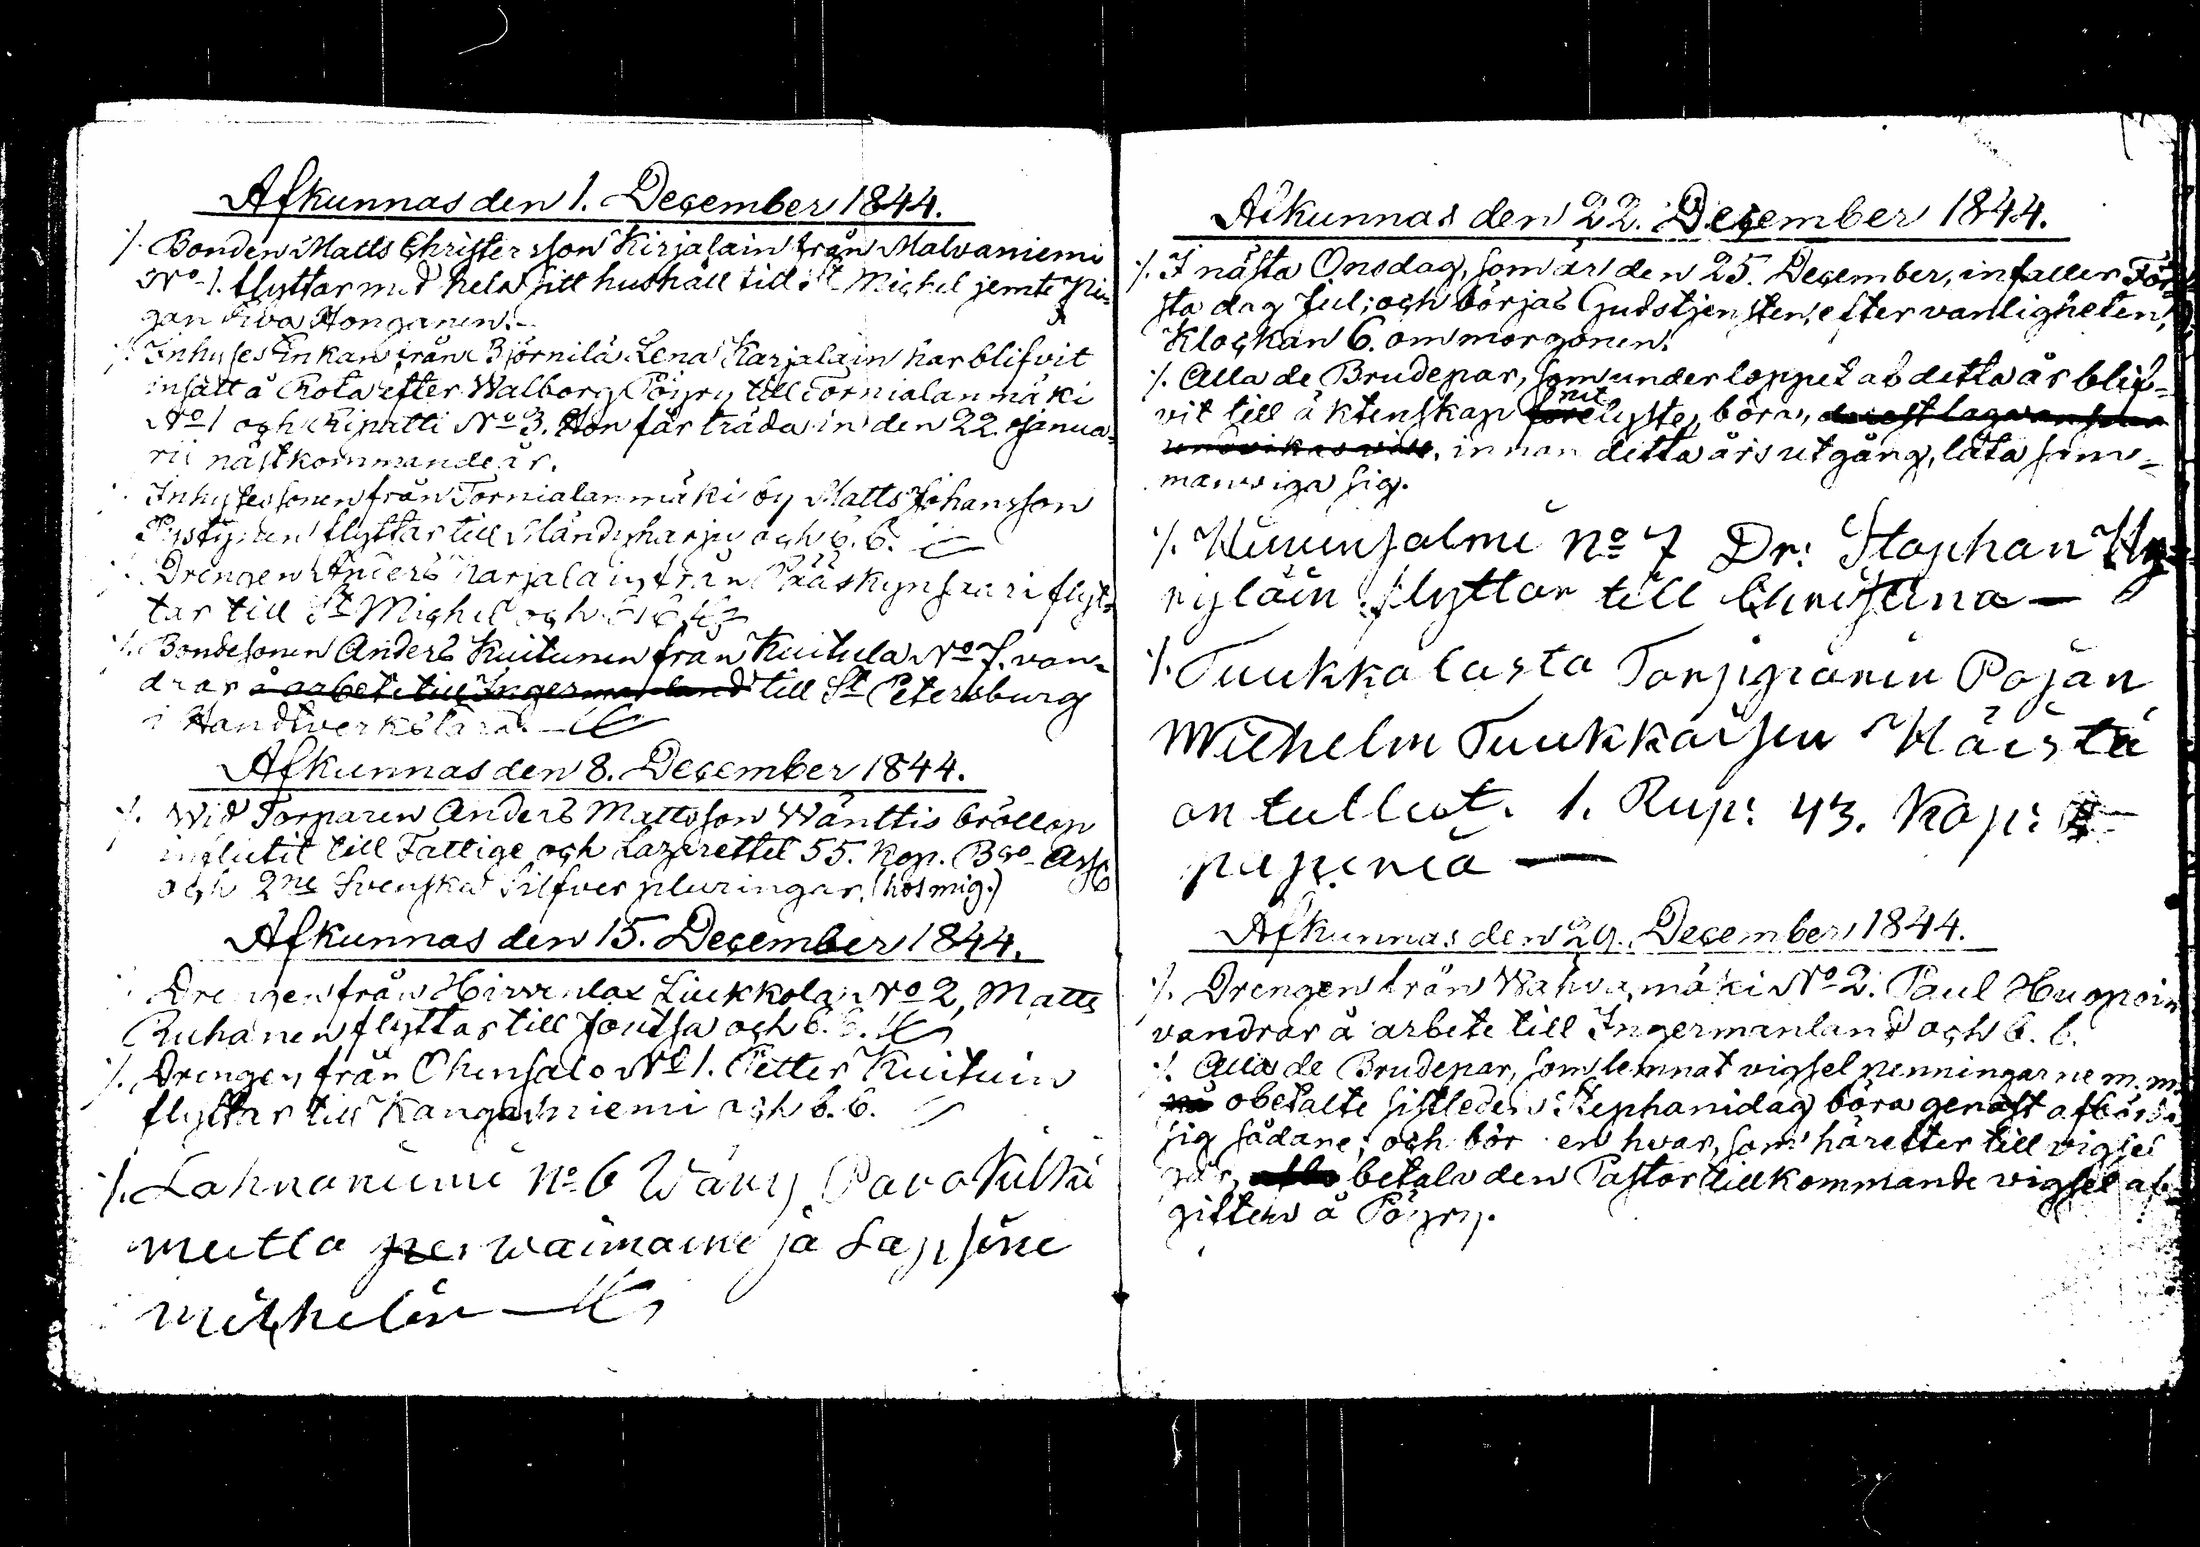 Afkunnas den 1. December 1844.
·/. Bonden Matts Christersson Kirjalain från Malvaniemi
No 1. flyttar med hela sitt hushåll till St Michel jemte Pi-
gan Eva Honganen.
·/. Inhyses Enkan från Björnilä Lena Karjalain har blifvit
insatt å Rota efter Walborg Pöyry till Tornialanmäki
No 1 och Ripatti No 3. Hon får träda in den 22. Janua-
rii nästkommande år.
·/. Inhysessonen från Tornialanmäki by Matts Johansson
Pystynen flyttar till Mändyharju och b. b.
·/. Drengen Anders Karjalain från Pääskynsaari flyt-
tar till St Michel och b. b.
·/. Bondesonen Anders Kuitunen från Kuitula No 7. van-
drar å arbete till Ingermanland till St Petersburg
i Handtverkslära.
Afkunnas den 8. December 1844.
·/. Wid Torparen Anders Mattsson Wänttis bröllop
influtit till Fattige och Lazarettet 55. Kop. Bco Ass
och 2ne Svenska Silfver pluringar. (hos mig.)
Afkunnas den 15. December 1844.
·/. Drengen från Hirvenlax Liukkola No 2, Matts
Ruhanen flyttar till Joutsa och b. b.
·/. Drengen från Ohensalo No 1. Petter Kuituin
flyttar till Kangasniemi och b. b.
·/. Lahnaniemi No 6 Wävy Pavo
mutta waimoine ja Lapsine
Mickeliin
Afkunnas den 22. December 1844.
·/. I nästa Onsdag, som är den 25. December, infaller För-
sta dag Jul; och börjas Gudstjensten, efter vanligheten,
Klockan 6. om morgonen.
·/. Alla de Brudepar, som under loppet af detta år blif-
vit till äktenskap lyste, böra,
innan detta års utgång, låta sam-
manviga sig.
·/. Hiirensalmi No 7 Dr: Staphan Hy-
ryläin flyttar till Christina
·/. Tuukkalasta Torpparin Pojan
Wilhelm Tuukkaisen Häistä
on tullut. 1. Rup: 43. Kop:
paperia
Afkunnas den 29. December 1844.
·/. Drengen från Wahvamäki No 2. Paul Huopoin
vandrar å arbete till Ingermanland och b. b.
·/. Alla de Brudepar, som lemnat vigselpenningarne m. m.
obetalte sistleden Stephanidag böra genast afbörda
sig sådane; och bör en hvar, som härefter till vigsel
går, betala den Pastor tillkommande vigsel af-
giften å Pöyry.